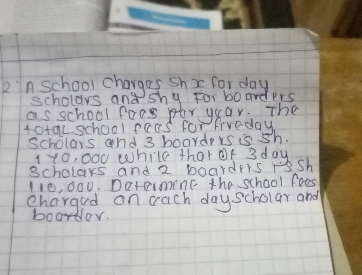 2. A school charges sh x for day
scholars and sh y for boarders
as school fees per year. The
total school fees for five day
scholars and 3 boarders is sh.
170,000 while that of 3 day
scholars and 2 boarders is sh
110,000. Determine the school fees
charged on each day scholar and
boarder.